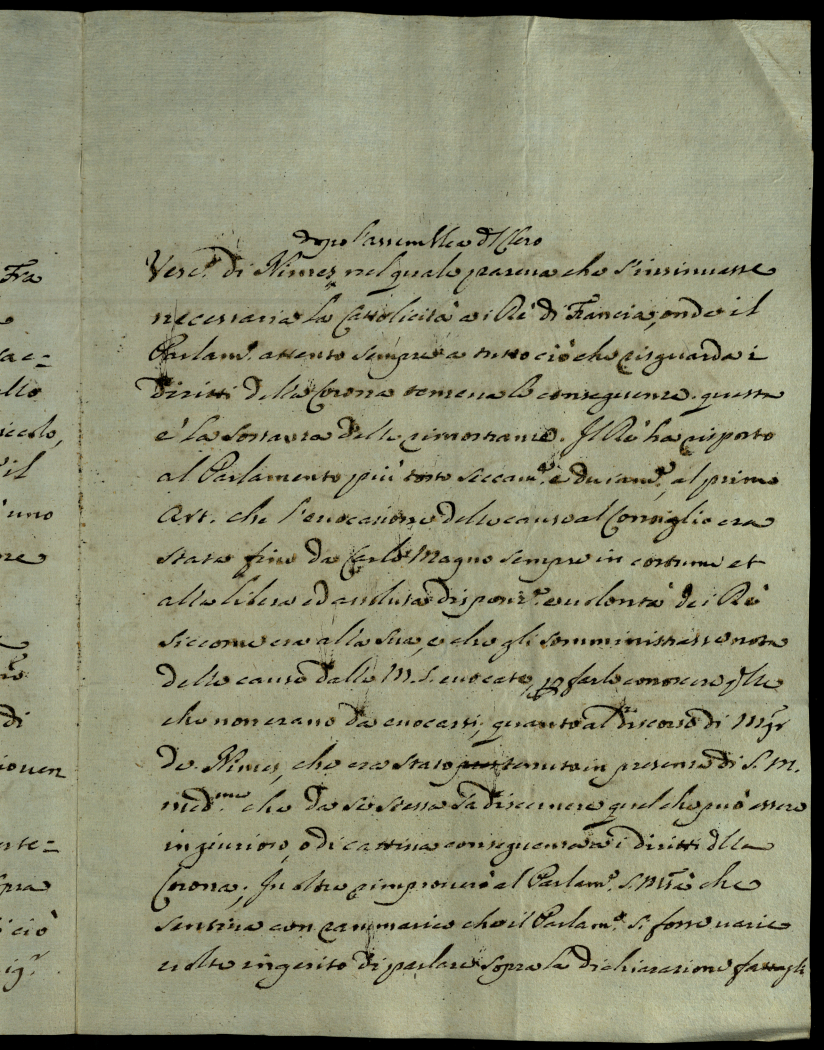 Fra
cae=
allo
iccolo,
il
uno
re
di
ioven
erte=
opra
i ciò
ig.r
dopo l'assemblea dl Clero
Vesc.º di Nimes, nel quale pareva che s'insinuasse
necessaria la Cattolicità a i Rè di Francia, onde il
Parlam.º attento sempre a tutto ciò che risguarda i
diritti della Corona temeva le conseguenze. questa
è la sostanza delle rimostranze. Il Rè ha risposto
al Parlamento più tosto seccam.e e duram.e, al primo
Art. che l'evocazione delle cause al Consiglio era
stata fino da Carlo Magno sempre in costume et
alla libera ed assoluta disposiz.e e volontà dei Rè
siccome era alla sua, e che gli somministrasse nota
delle cause dalla M. S. evocate, p farle conoscere qlle
che non erano da evocarsi; quanto al discorso di Mgr
de Nimes, che era stato tenuto in presenza di S. M.
med.ma che da se stessa sà discernere quel che può essere
ingiurioso, o di cattiva conseguenza a i diritti dlla
Corona; In oltre rimproverò al Parlam.º S. Mtà che
sentiva con rammarico che il Parlam.º si fosse varie
volte ingerito di parlare sopra la dichiarazione fattagli